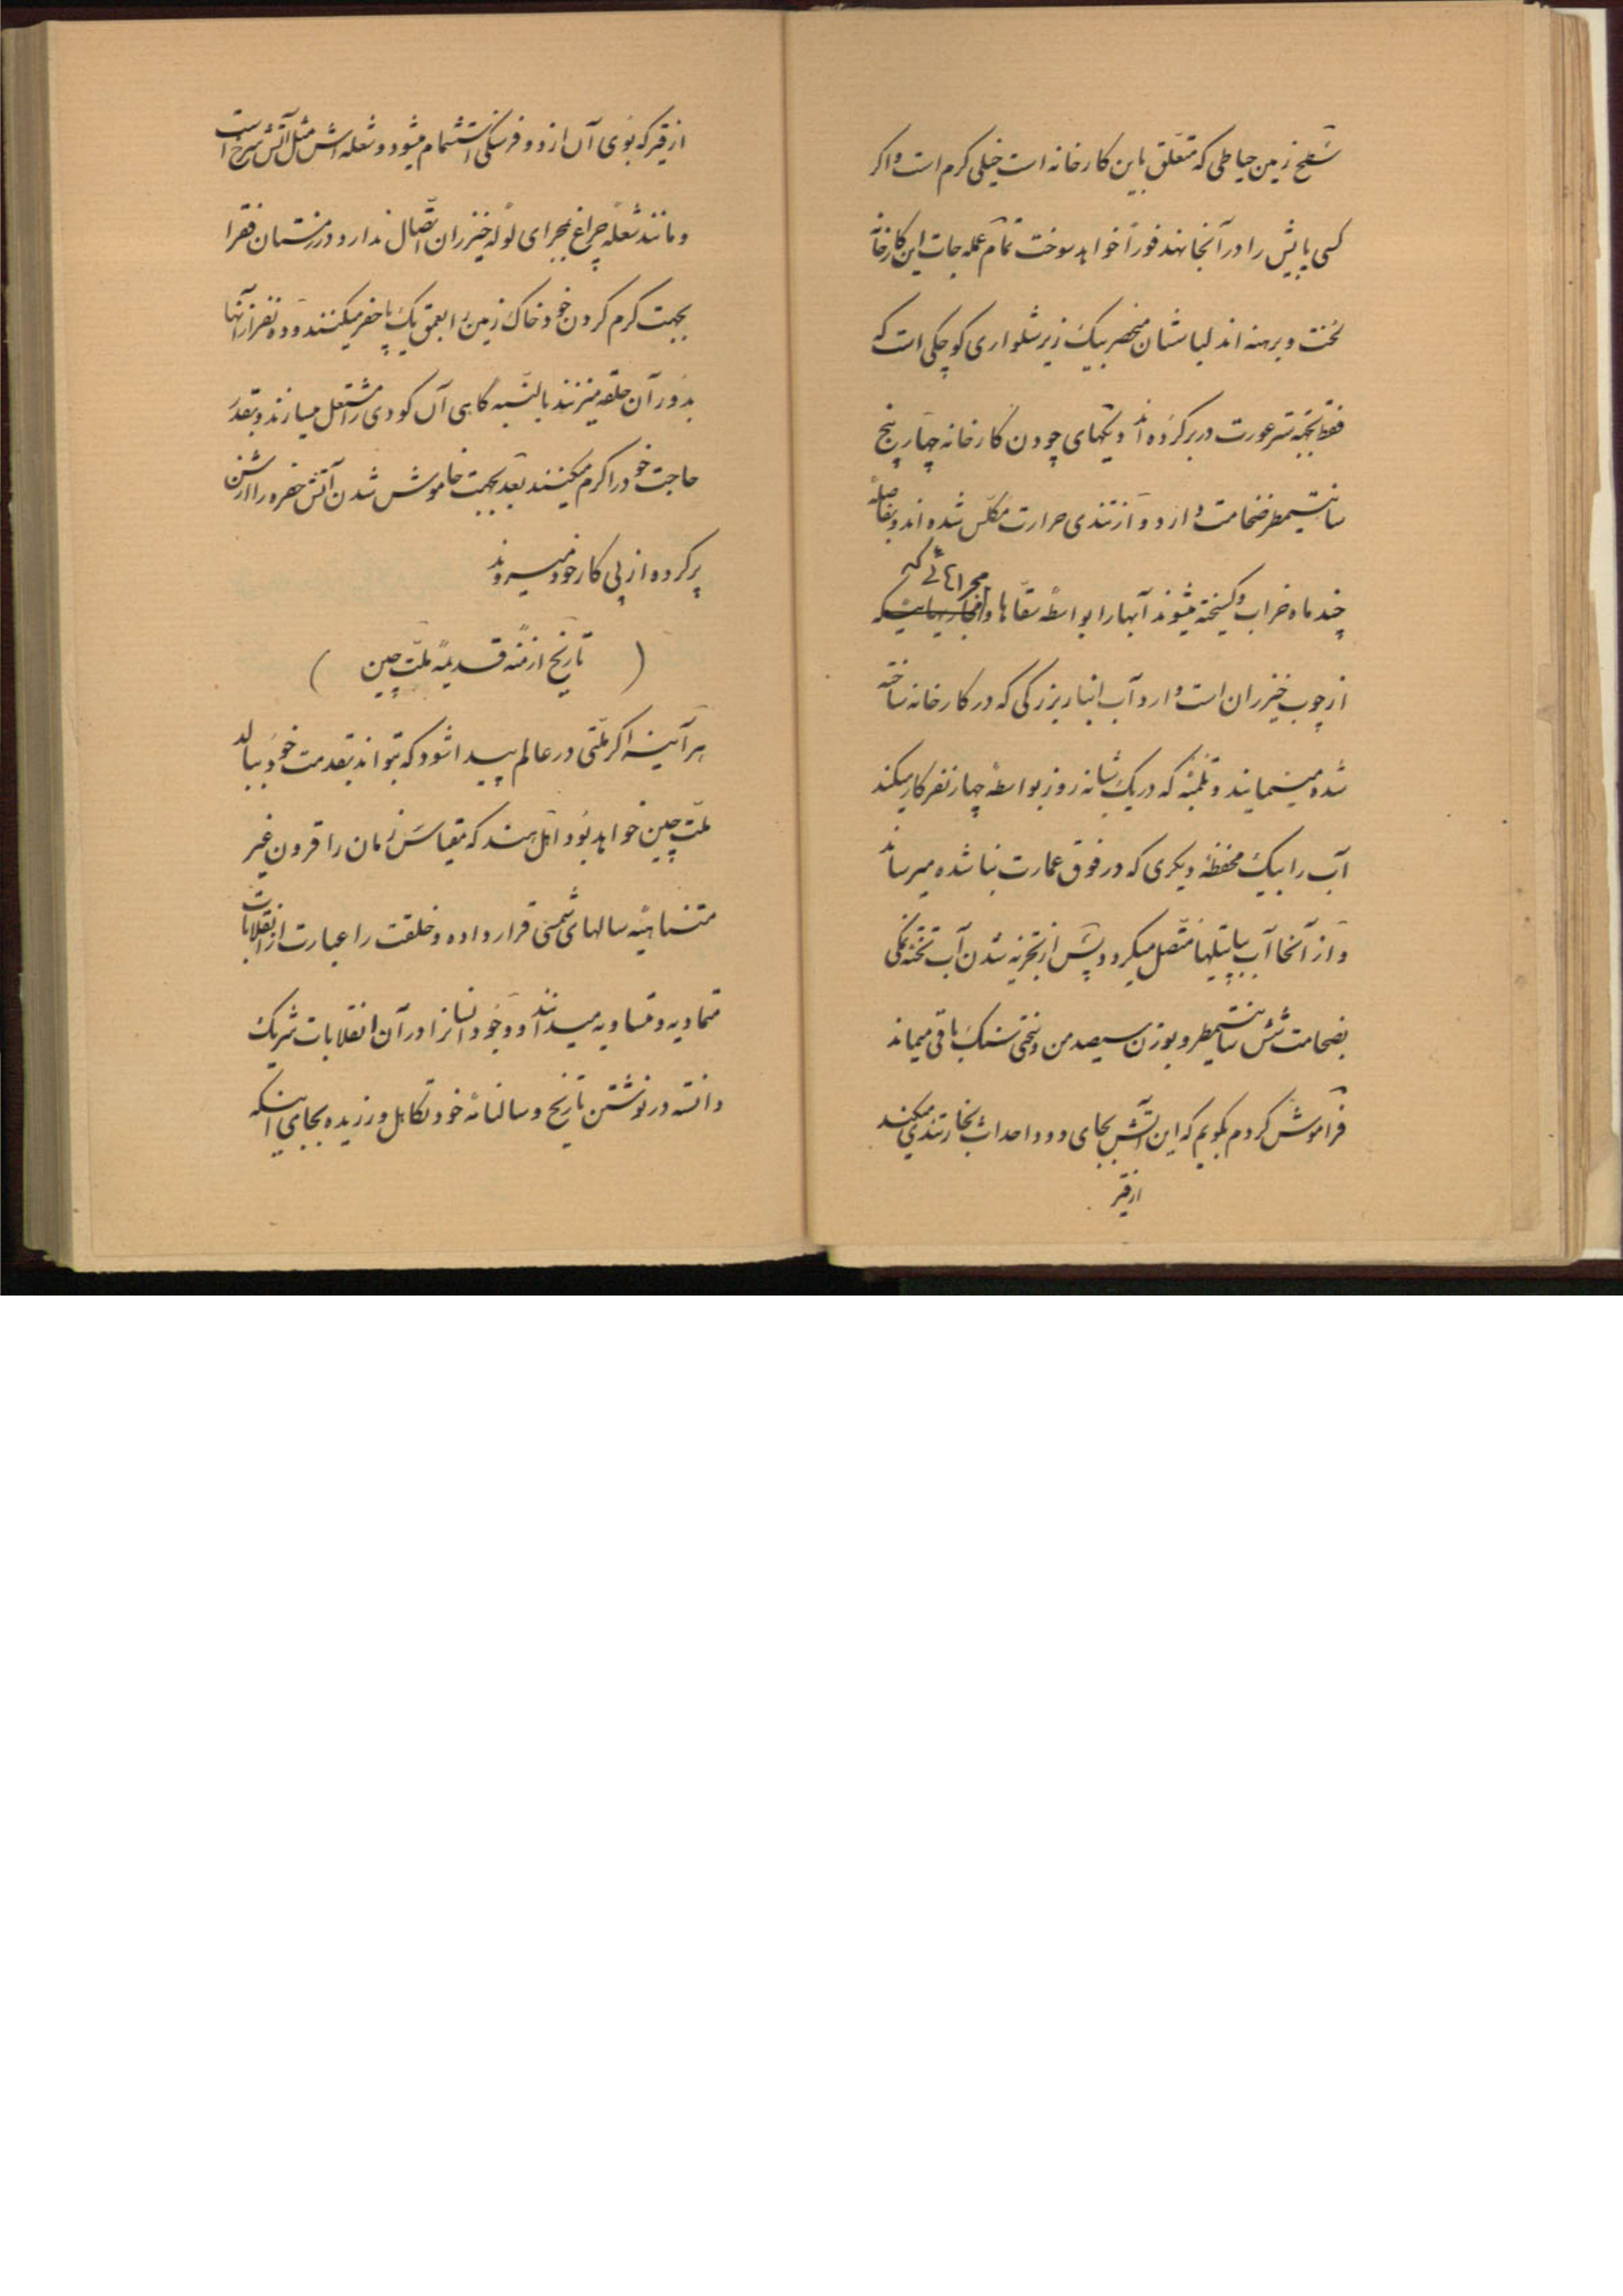 سطح زمین حیاطی که متعلق باین کارخانه است خیلی کرم است و اکر
کسی پایش را در آنجا نهد فوراً خواهد سوخت تمام عمله جات این کارخانه
لخت و برهنه اند لباسشان منحصر بیک زیر شلواری کوچکی است که
فقط بجهة ستر عورت در بر کرده اند دیکهای چودن کارخانه چهار پنج
سانتیمطر ضخامت دارد و از تندی حرارت مکلس شده اند و بفاصلهٔ
چند ماه خراب و کسیخته میشوند آبها را بواسطه سقاها و مجراهائی که
از چوب خیزران است وارد آب انبار بزرکی که در کارخانه ساخته
شده مینمایند و تلمبهٔ که در یک شبانه روز بواسطهٔ چهار نفر کار میکند
آب را بیک محفظهٔ دیکری که در فوق عمارت بنا شده میرساند
و از آنجا آب بپاتیلها متصل میکردد و پس از تجزیه شدن آب تخته نمکی
بضخامت شش سانتیمطر و بوزن سیصد من و بسختی سنک باقی میماند
فراموش کردم بکویم که این آتش بجای دود احداث بخار تندی میکند
از قیر
از قیر که بوی آن از دو فرسنکی استشمام میشود و شعله اش مثل آتش سرخ است
و مانند شعله چراغ بمجرای لوله خیزران اتصال ندارد در زمستان فقرا
بجهت کرم کردن خود خاک زمین را بعمق یک پا حفر میکنند و ده نفر از آنها
بدور آن حلقه میزنند بالنسبه کاهی آن کودی را مشتعل میسازند و بقدر
حاجت خود را کرم میکنند بعد بجهت خاموش شدن آتش حفره را از شن
پر کرده از پی کار خود میروند
( تاریخ ازمنه قدیمهٔ ملت چین )
هر آینه اکر ملتی در عالم پیدا شود که بتواند بقدمت خود ببالد
ملت چین خواهد بود اهل هند که مقیاس زمان را قرون غیر
متناهیهٔ سالهای شمسی قرار داده و خلقت را عبارت از انقلابات
متمادیه و متساویه میدانند و وجود انسانرا در آن انقلابات شریک
دانسته در نوشتن تاریخ و سالنامهٔ خود تکاهل ورزیده بجای اینکه